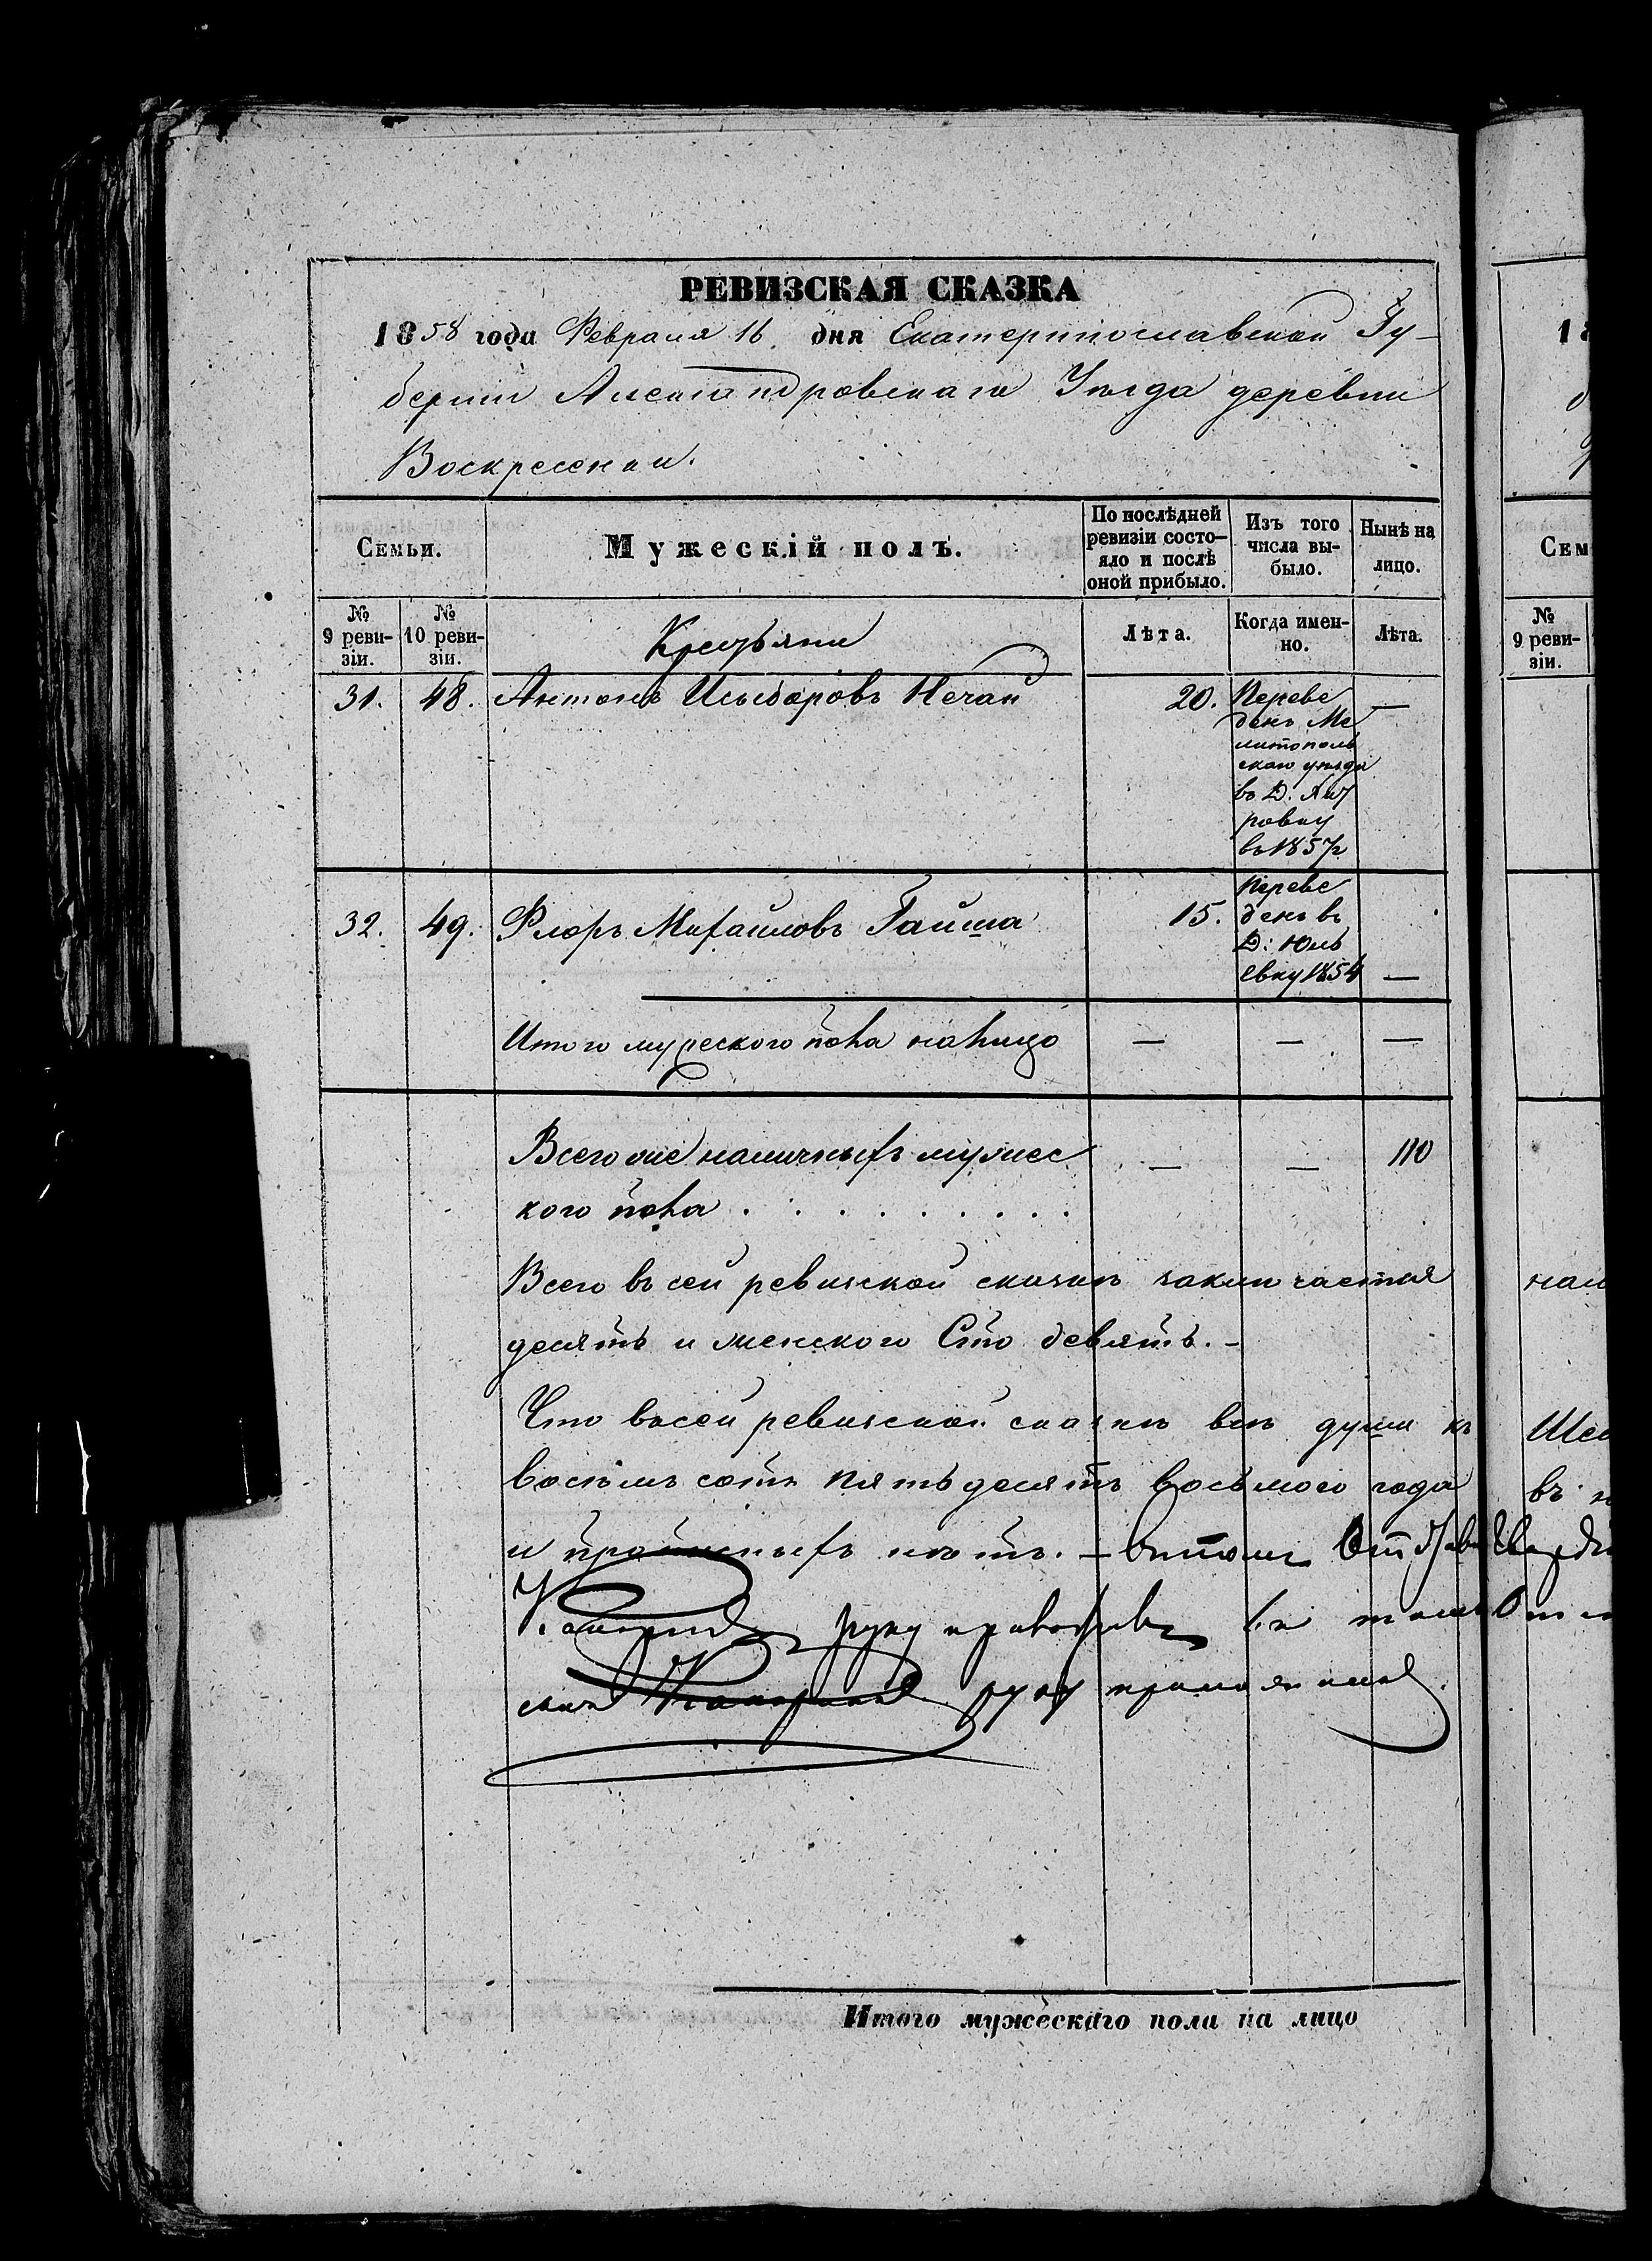 РЕВИЗСКАЯ СКАЗКА
1858 года Февраля 16. дня Екатеринославской Гу-
берніи Александровскаго Уѣзда деревни
Воскресенки.
Семьи.
Мужескій полъ.
По послѣдней
ревизіи состо-
яло и послѣ
оной прибыло.
Изъ того
числа вы-
было.
Нынѣ на
лицо.
№
9 реви-
зіи.
№
10 реви-
зіи.
Крестьяни
Лѣта.
Когда имен-
но.
Лѣта.
31. 48. Антонъ Исидоровъ Нечай 20. —
Переве
денъ Ме
литополь
скаго уѣзда
въ Д:
ровку
въ 1857
32. 49. Флоръ Михайловъ Гайша 15. —
Переве
денъ въ
Д: Юль
евку 1854
Итого мужеского пола налицо — — —
Всего же наличныхъ мужес — — 110
кого пола . . . . . . . . .
Всего въ сей ревизской сказкѣ заключается
десять и женского Сто девять. -
Что въсей ревизской сказкѣ всѣ души къ
восемь сотъ пятьдесятъ восьмого года
и прописныхъ нѣтъ. -
руку
руку
Итого мужескаго пола на лицо
18
Сем
№
9 реви-
зіи.
нал
въ